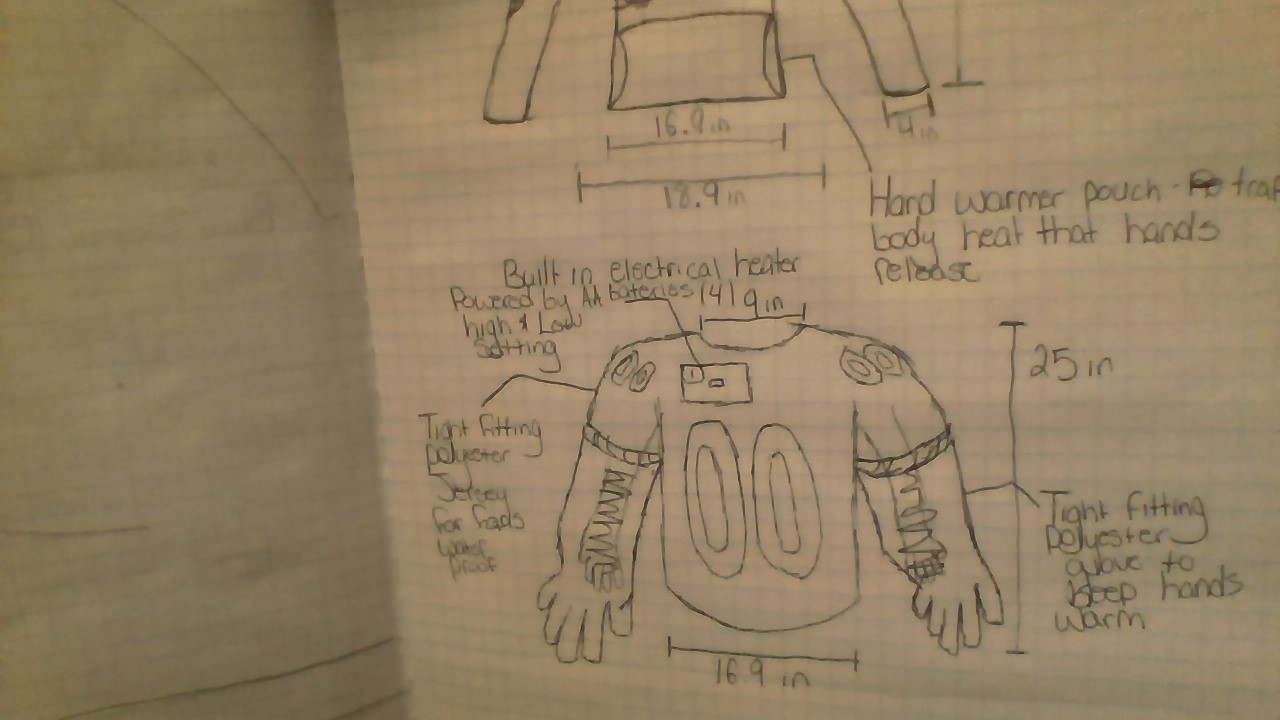 16.9 in
4 in
18.9 in
Hand warmer pouch - to trap
body heat that hands
release
Built in electrical heater
Powered by AA bateries (4)
high & Low
Setting
9 in
00
25 in
Tight fitting
polyester
Jersey
for
water
proof
Tight fitting
Polyester
glove to
keep hands
warm
16.9 in